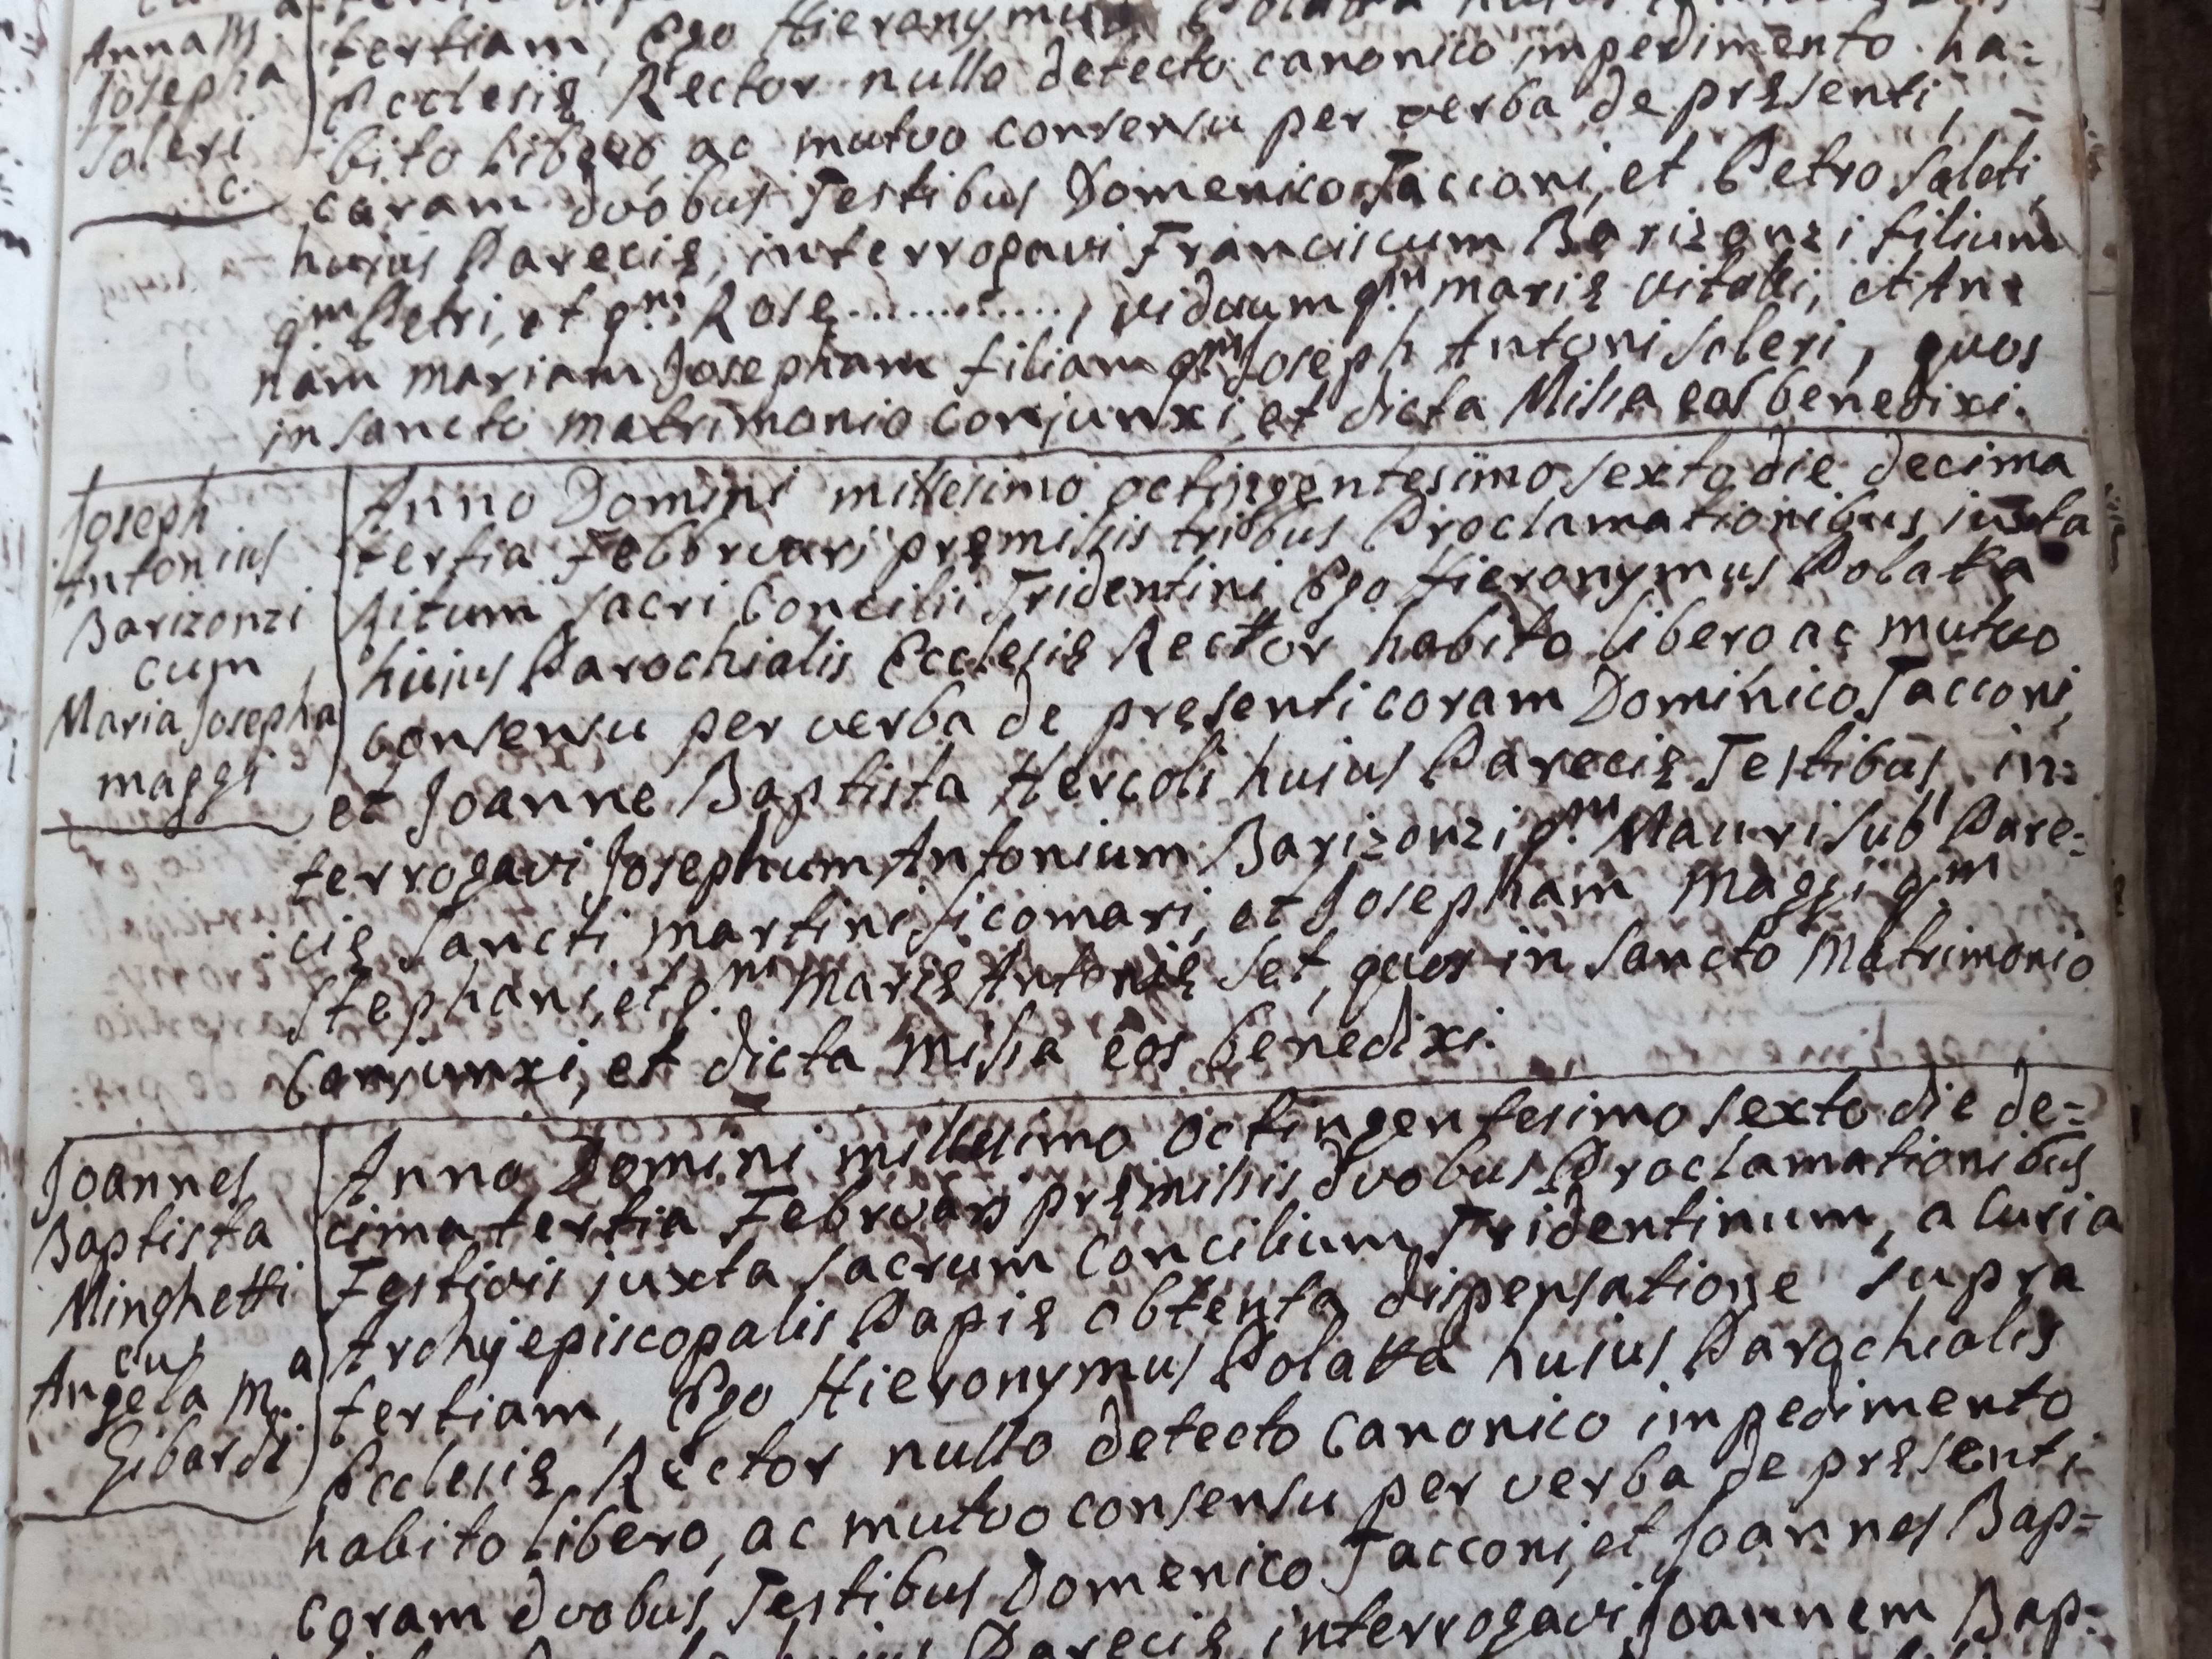 Anna M.
Josepha
Soleri
c.
tertiam, Ego Hieronymus
Ecclesię Rector nullo detecto canonico impedimento ha=
bito libero, ac mutuo consensu per verba de pręsenti,
coram duobus Testibus Domenico Tacconi, et Petro Saleti
hujus Parecię, interrogavi Franciscum Barizonzi filium
qm Petri, et qm Rosę ............, viduum qm Marię Vitali, et An=
nam Mariam Josepham filiam qm Joseph Antoni Soleri, quos
in sancto matrimonio conjunxi, et dicta Missa eos benedixi.
Joseph
Antonius
Barizonzi
cum
Maria Josepha
Maggi
Anno Domini millesimo octingentesimo sexto die decima
tertia Febbruarj pręmissis tribus Proclamationibus iuxta
Ritum Sacri Concilii Tridentini Ego Hieronymus Polaka
hujus Parochialis Ecclesię Rector habito libero ac mutuo
consensu per verba de pręsenti coram Dominico Tacconi,
et Joanne Baptista Hercoli hujus Parecię Testibus in=
terrogavi Josephum Antonium Barizonzi qm Mauri sub Pare=
cię Sancti Martini Sicomari, et Josepham Maggi qm
Stephani, et qm Marię Antonię Set, quos in Sancto Matrimonio
Conjunxi, et dicta Missa eos benedixi.
Joannes
Baptista
Minghetti
cum
Angela M.a
Gibardi
Anno Domini millesimo octingentesimo sexto die de=
cima tertia Februarj pręmissis duobus Proclamationibus
Festivis juxta Sacrum Concilium Tridentinum, a Curia
Archyepiscopalis Papię obtenta dispensatione supra
tertiam, Ego Hieronymus Polaka hujus Parochialis
Ecclesię Rector nullo detecto Canonico impedimento
habito libero, ac mutuo consensu per verba de pręsenti
coram duobus Testibus Domenico Tacconi, et Joannes Bap=
Parecię interrogavi Joannem Bap=